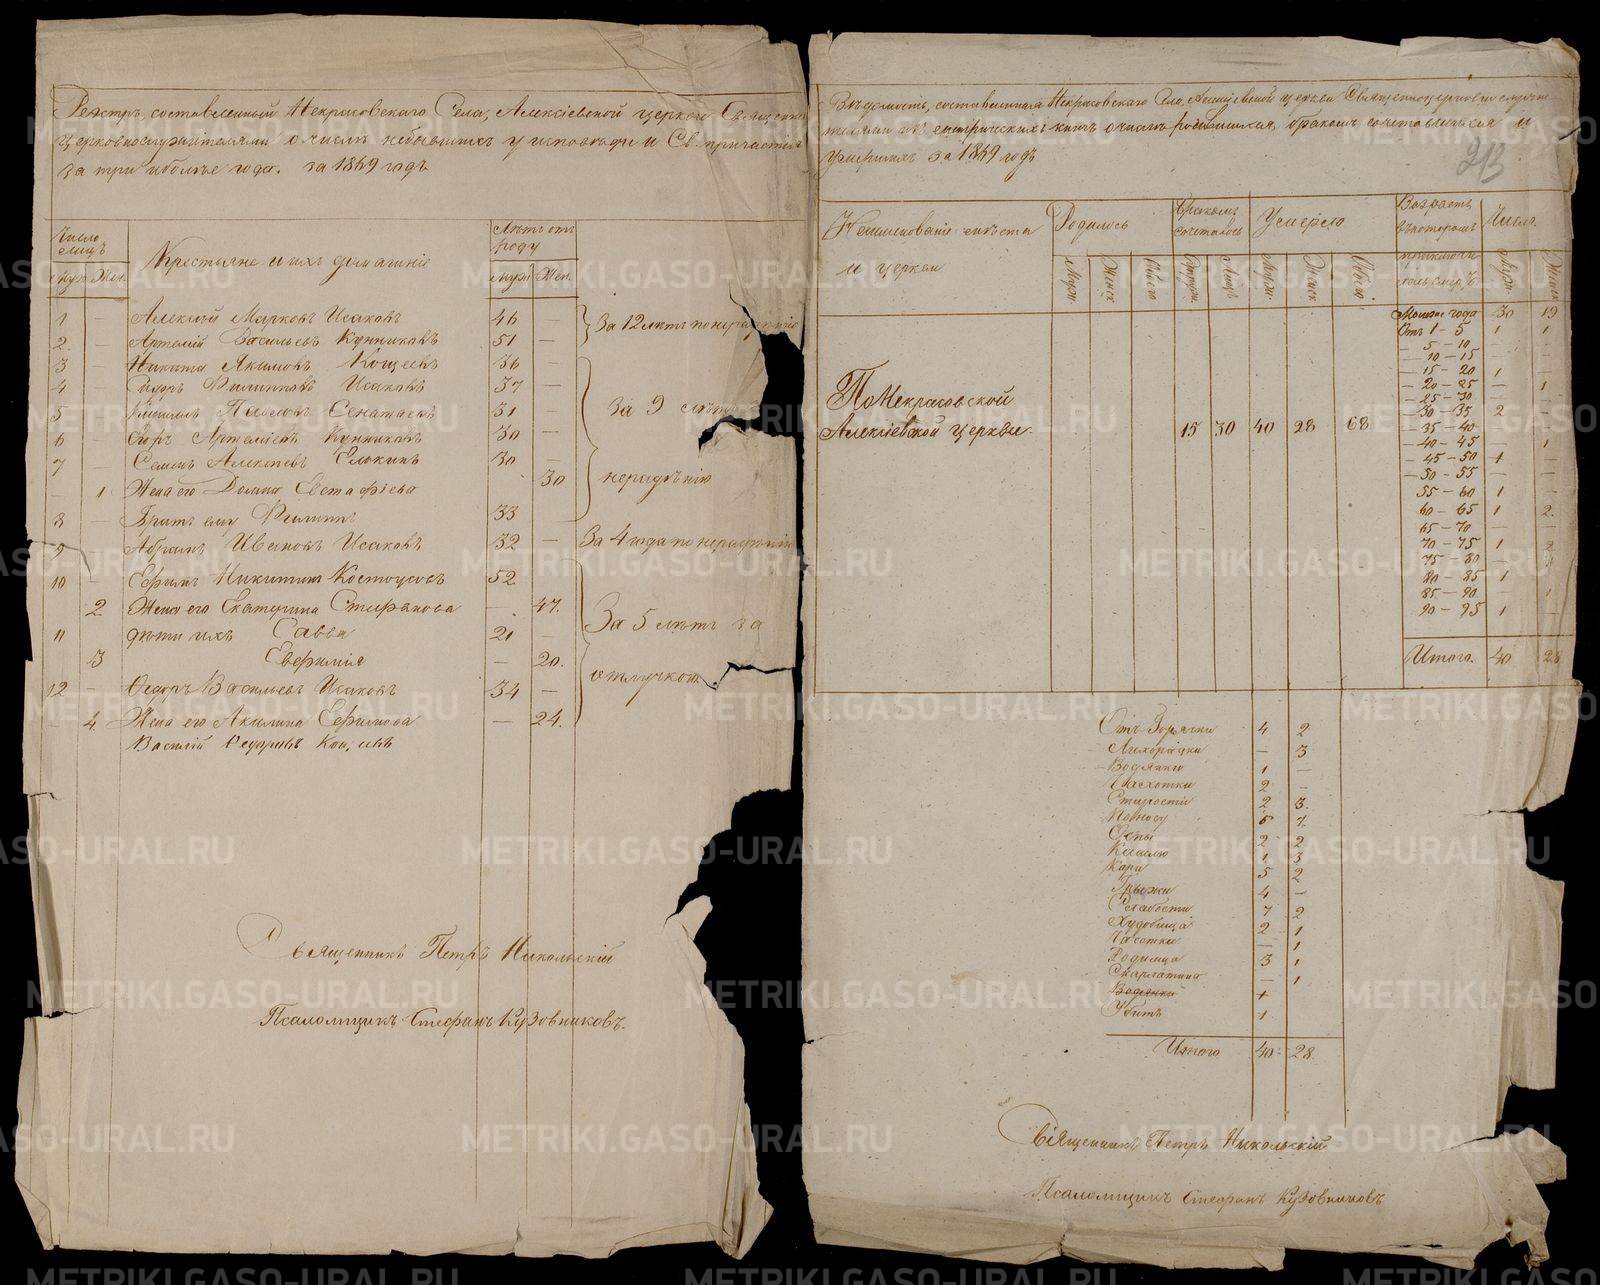 Реэстръ, составленный Некрасовскаго Села, Алексіевской церкви Священно
Церковнослужителями о числѣ небывшихъ у исповѣди и Св. причастія
за три и болѣе года. за 1869 годъ
Число лицъ
Муж. Жен.
Крестьяне и ихъ домашніе
Лѣтъ отъ роду
Муж. Жен.
1 — Алексѣй Марковъ Исаковъ 46 —
За 12 лѣтъ по нерадѣнію
2 — Артемій Васильевъ Кунниковъ 51 —
3 — Никита Якимовъ Кощеевъ 36 —
4 — Сидръ Филипповъ Исаковъ 37 —
5 Павловъ 31 —
За 9 лѣтъ
6 — Артеміевъ Кунниковъ 30 —
7 — Семенъ Алексѣевъ 30 —
— 1 Жена его Домна Евстафіева 30
нерадѣнію
8 — Братъ ему Филиппъ 33
9 — Абрамъ Ивановъ Исаковъ 32 — За 4 года по нерадѣнію
10 — Ефимъ Никитинъ Костоусовъ 52
2 Жена его Екатерина Стефанова — 47.
За 5 лѣтъ за
11 дѣти ихъ Савва 21 —
3 Евфимія — 20.
отлучкою
12 — Ѳедоръ Васильевъ Исаковъ 34 —
— 4 Жена его Акилина Ефимова — 24.
Василій Ѳедоровъ
Священникъ Петръ Никольскій
Псаломщикъ Стефанъ Кузовниковъ.
Вѣдомость, составленная Некрасовскаго Села, Алексіевской церкви Священноцерковнослужи
телями о числѣ родившихся, бракомъ сочетавшихся и
умершихъ за 1869 годъ
213
Наименованіе мѣста
и церкви
Родилось
Бракомъ сочеталось
Умерло
Возрастъ въ которомъ
Число.
Муж. Женск Обоего Лицъ Муж. Женск Обоего Муж. Женск
Моложе года 30 19
Отъ 1 – 5 1 1
— 5 – 10 — —
— 10 – 15 — —
— 15 – 20 1 —
— 20 – 25 — 1
— 25 – 30 — —
30 – 35 2 —
35 – 40 — —
— 40 – 45 — 1
— 45 – 50 1 —
— 50 – 55 — —
55 – 60 1 —
60 – 65 1 2.
65 – 70 — —
70 – 75 1 2
75 – 80 —
80 – 85 1 —
85 – 90 — 1
90 – 95 1 —
Итого. 40 28
По Некрасовской
Алексіевской церкви. 15 30 40 28 68
Отъ Горячки 4 2
Лихорадки — 3
Водянки 1 —
Чахотки 2 —
Старости 2 3.
Поносу 6 7.
Оспы 2 2
Кашлю 1 3
Кори 5 2
Грыжи 4 —
Слабости 7 2
2 1
— 1
Родимца 3 1
Скарлатина — 1
Водянки 1
Убитъ 1
Итого 40 28.
Священникъ Петръ Никольскій
Псаломщикъ Стефанъ Кузовниковъ
METRIKI.GASO-URAL.RU